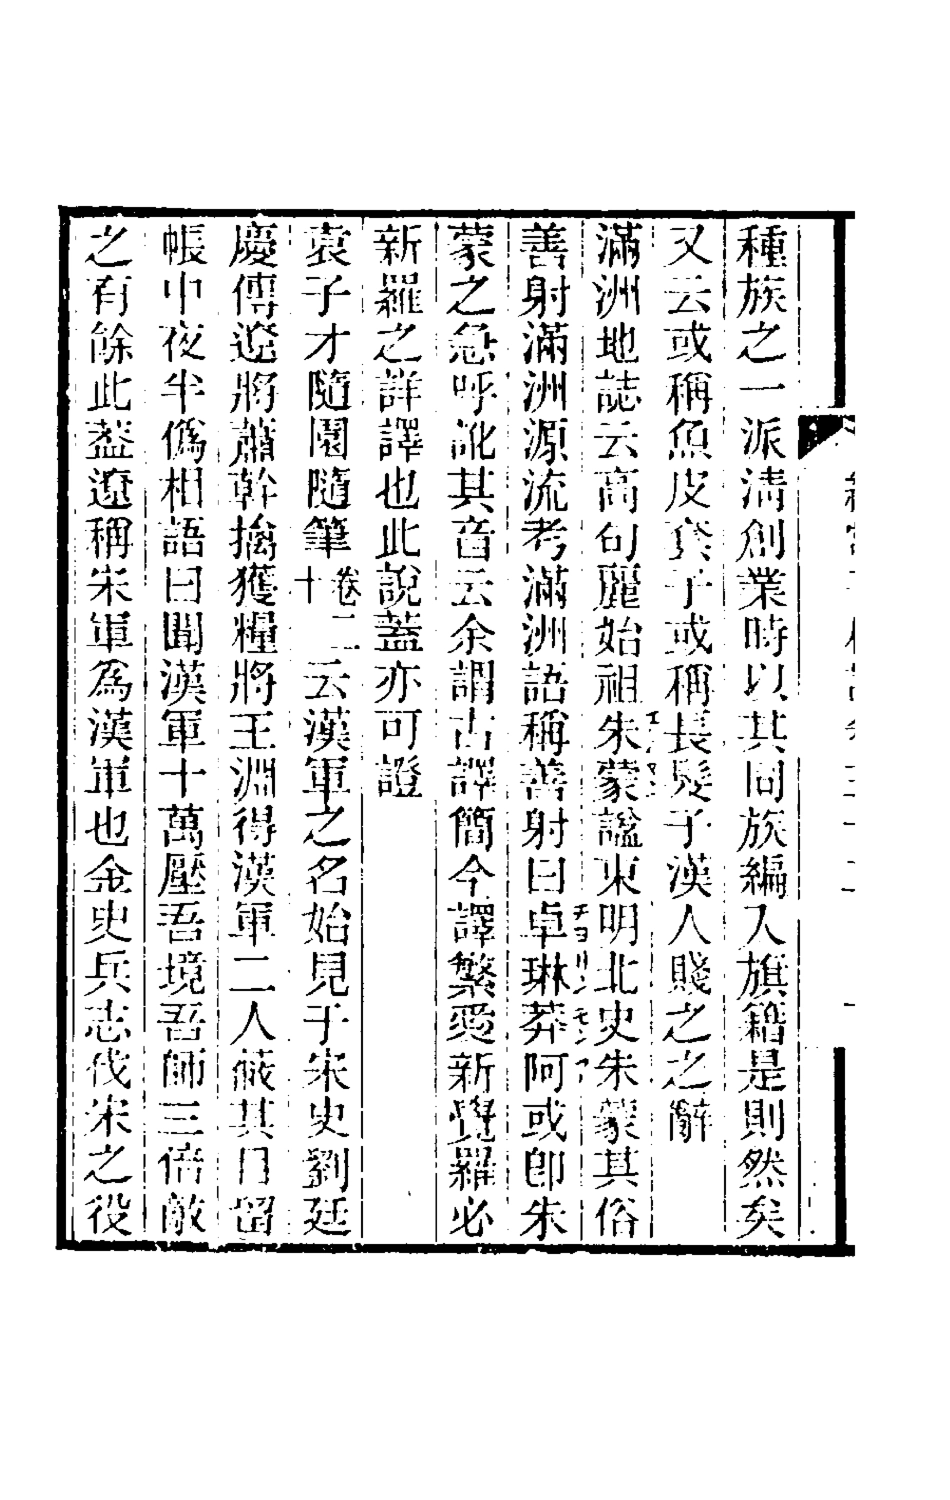 種族之一派淸創業時以其同族編入旗籍是則然矣
又云或稱魚皮㺜子或稱長髮子漢人賤之之辭
滿洲地誌云高句麗始祖朱蒙諡東明北史朱蒙其俗
善射滿洲源流考滿洲語稱善射曰卓琳莽阿或卽朱
蒙之急呼訛其音云余謂古譯簡今譯繁愛新覺羅必
新羅之詳譯也此說蓋亦可證
袁子才隨園隨筆卷二十云漢軍之名始見于宋史劉廷
慶傳遼將蕭幹擒獲糧將王淵得漢軍二人蔽其目留
帳中夜半僞相語曰聞漢軍十萬壓吾境吾師三倍敵
之有餘此葢遼稱宋軍爲漢軍也金史兵志伐宋之役